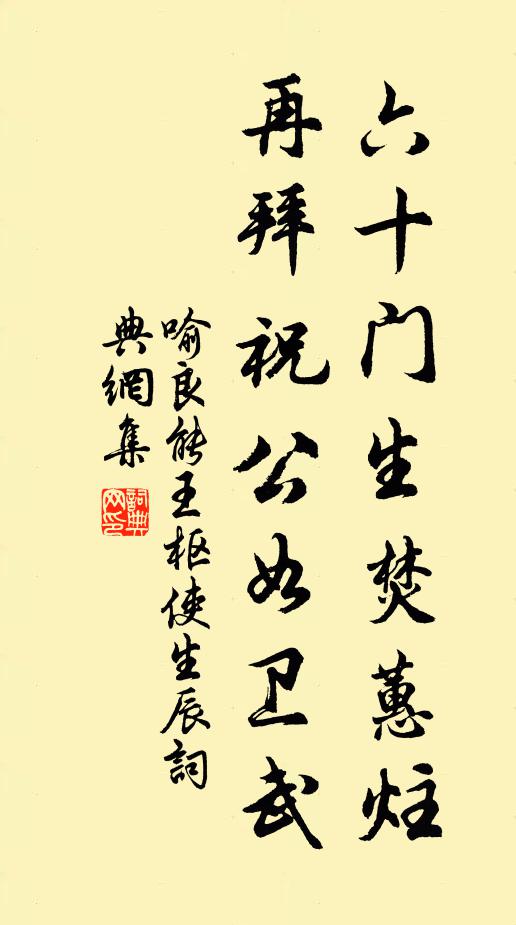 六十門生焚蕙炷
再拜祝公如卫武
喻良能王枢使生辰詞
典網集
詞典网印